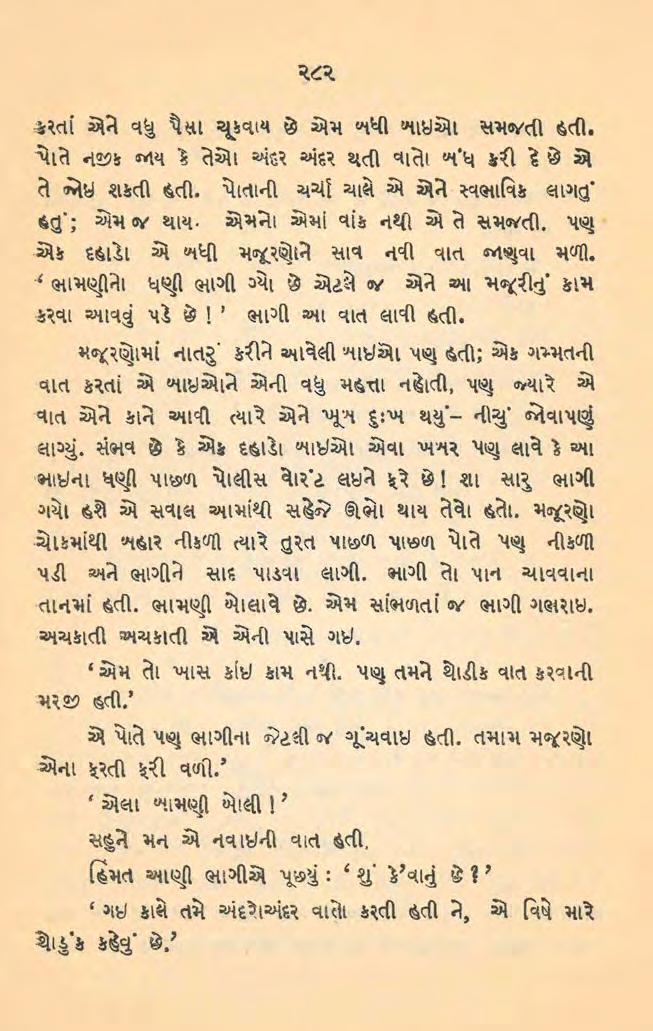 ૨૮૨
કરતાં એને વધુ પૈસા ચૂકવાય છે એમ બધી બાઇઓ સમજતી હતી.
પોતે નજીક જાય કે તેઓ અંદર અંદર થતી વાતો બંધ કરી દે છે એ
તે જોઇ શકતી હતી. પોતાની ચર્ચા ચાલે એ એને સ્વભાવિક લાગતું
હતું; એમ જ થાય. એમનો એમાં વાંક નથી એ તે સમજતી. પણ
એક દહાડો એ બધી મજૂરણોને સાવ નવી વાત જાણવા મળી.
‘ ભામણીનો ધણી ભાગી ગ્યો છે એટલે જ એને આ મજૂરીનું કામ
કરવા આવવું પડે છે ! ’ ભાગી આ વાત લાવી હતી.
મજૂરણોમાં નાતરું કરીને આવેલી બાઇઓ પણ હતી; એક ગમ્મતની
વાત કરતાં એ બાઇઓને એની વધુ મહત્તા નહોતી, પણ જ્યારે એ
વાત એને કાને આવી ત્યારે એને ખૂબ દુઃખ થયું– નીચું જોવાપણું
લાગ્યું. સંભવ છે કે એક દહાડો બાઇઓ એવા ખબર પણ લાવે કે આ
બાઇના ધણી પાછળ પોલીસ વોરંટ લઇને ફરે છે! શા સારુ ભાગી
ગયો હશે એ સવાલ આમાંથી સહેજે ઊભો થાય તેવો હતો. મજૂરણો
ચોકમાંથી બહાર નીકળી ત્યારે તુરત પાછળ પાછળ પોતે પણ નીકળી
પડી અને ભાગીને સાદ પાડવા લાગી. ભાગી તો પાન ચાવવાના
તાનમાં હતી. ભામણી બોલાવે છે. એમ સાંભળતાં જ ભાગી ગભરાઇ.
અચકાતી અચકાતી એ એની પાસે ગઇ.
‘એમ તો ખાસ કાંઇ કામ નથી. પણ તમને થોડીક વાત કરવાની
મરજી હતી.’
એ પોતે પણ ભાગીના જેટલી જ ગૂંચવાઇ હતી. તમામ મજૂરણો
એના ફરતી ફરી વળી.’
‘ એલા બામણી બોલી ! ’
સહુને મન એ નવાઇની વાત હતી.
હિંમત આણી ભાગીએ પૂછયું : ‘ શું કે’વાનું છે ? ’
‘ ગઇ કાલે તમે અંદરોઅંદર વાતો કરતી હતી ને, એ વિષે મારે
થોડુંક કહેવું છે.’